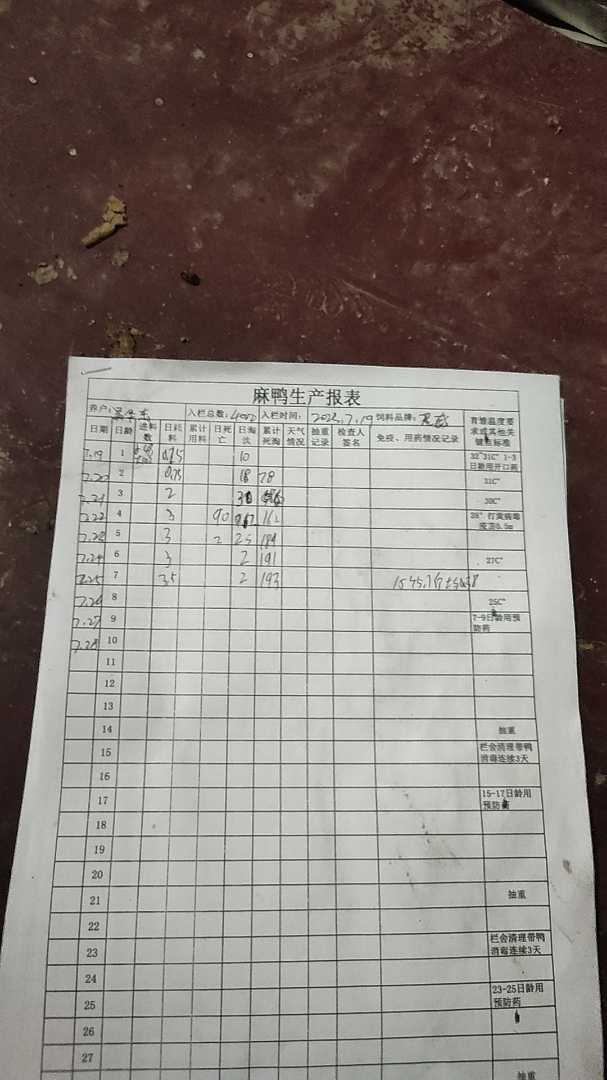 麻鸭生产报表
养户: 入栏总数:4000 入栏时间: 2023.7.19 饲料品牌:
育雏温度要求或其他关键指标标准
日期 日龄 进料数 日耗料 累计用料 日死亡 日淘汰 累计死淘 天气情况 抽重记录 检查人签名 免疫、用药情况记录
7.19 1 0.75 10 32~31C° 1-3日龄用开口药
7.20 2 0.75 18 28 31C°
7.21 3 2 30C°
7.22 4 3 90 162 28° 打黄病毒疫苗0.5m
7.23 5 3 2 25 189
7.24 6 3 2 191 27C°
7.25 7 3.5 2 193
7.26 8 25C°
7.27 9 7-9日龄用预防药
7.28 10
11
12
13
14 抽重
15 栏舍清理带鸭消毒连续3天
16
17 15-17日龄用预防药
18
19
20
21 抽重
22
23 栏舍清理带鸭消毒连续3天
24
25 23-25日龄用预防药
26
27
抽重